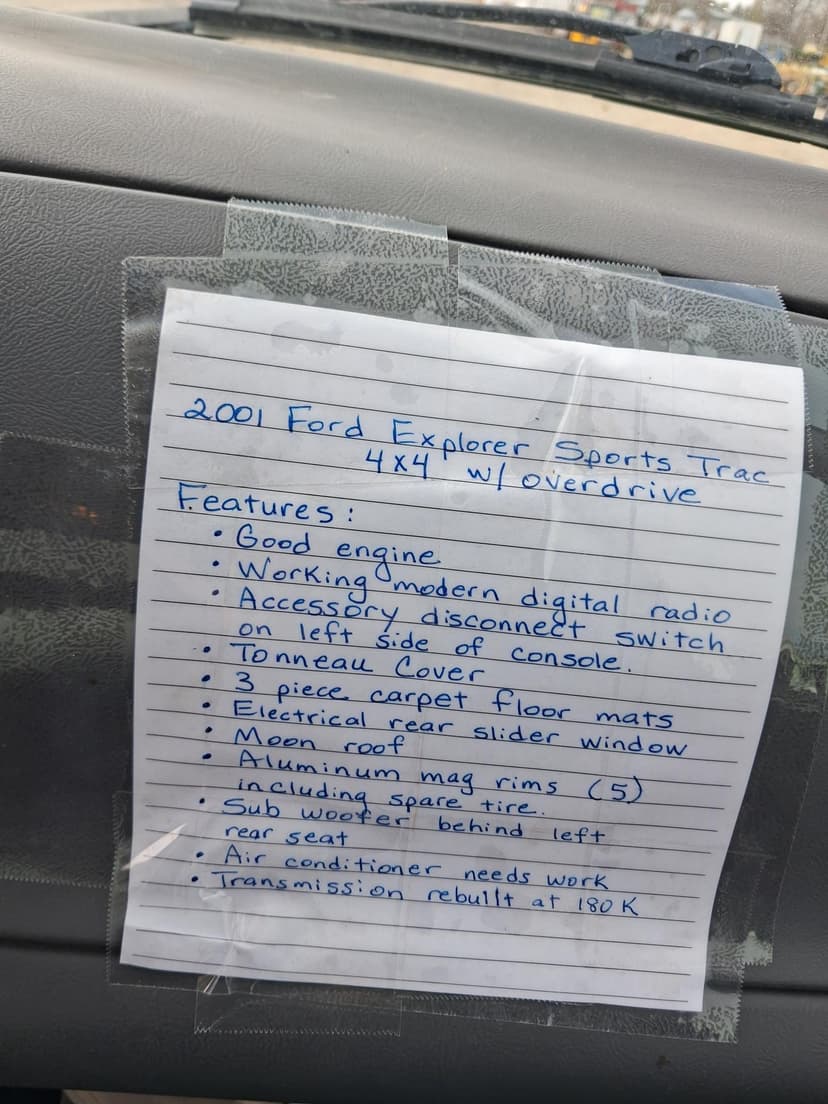 2001 Ford Explorer Sports Trac
4x4 w/ overdrive
Features:
• Good engine
• Working modern digital radio
• Accessory disconnect switch
on left side of console.
• Tonneau Cover
• 3 piece carpet floor mats
• Electrical rear slider window
• Moon roof
• Aluminum mag rims (5)
including spare tire.
• Sub woofer behind left
rear seat
• Air conditioner needs work
• Transmission rebuilt at 180 K